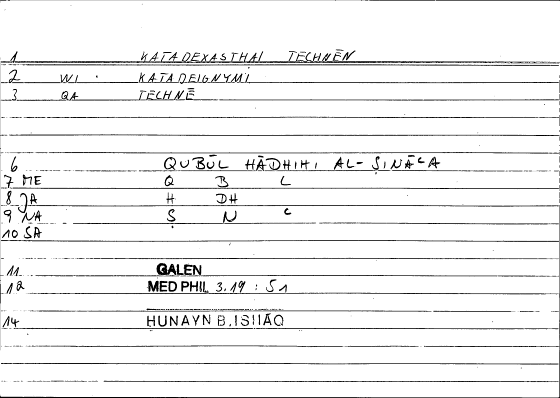 1 KATADEXASTHAI TECHNĒN
2 WI . KATADEIGNYMI
3 QA TECHNĒ
6 QUBŪL HĀDHIHI AL-ṢINĀᶜA
7 ME Q B L
8 JA H DH
9 NA Ṣ N ᶜ
10 SA
11 GALEN
12 MED PHIL 3.19 : 51
14 HUNAYN B.ISHĀQ